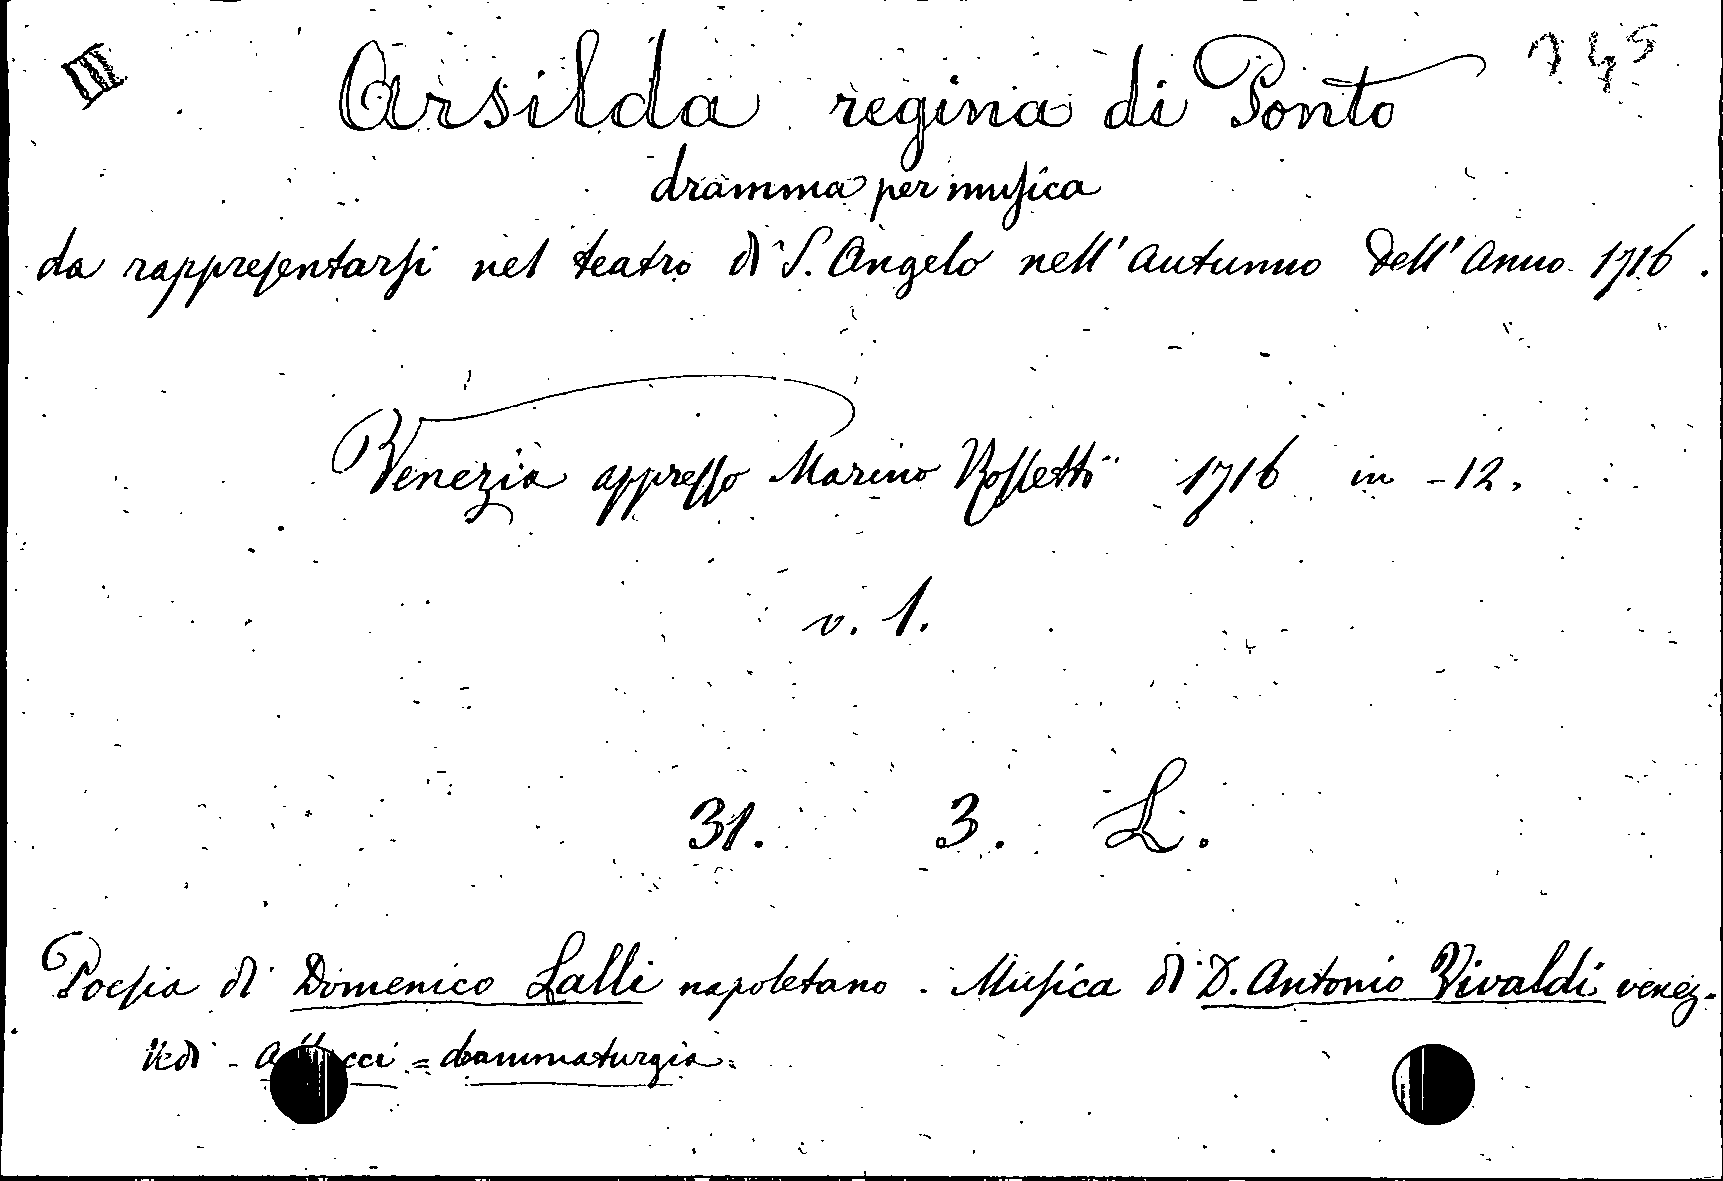 III
Arsilda regina di Ponto 745
dramma per musica
da rappresentarsi nel teatro di S. Angelo nell' Autunno dell' Anno 1716.
Venezia appresso Marino Rossetti 1716 in -12.
v. 1.
31. 3. L.
Poesia di Domenico Lalli napoletano. Musica di D. Antonio Vivaldi venez.
Vedi - = drammaturgia.